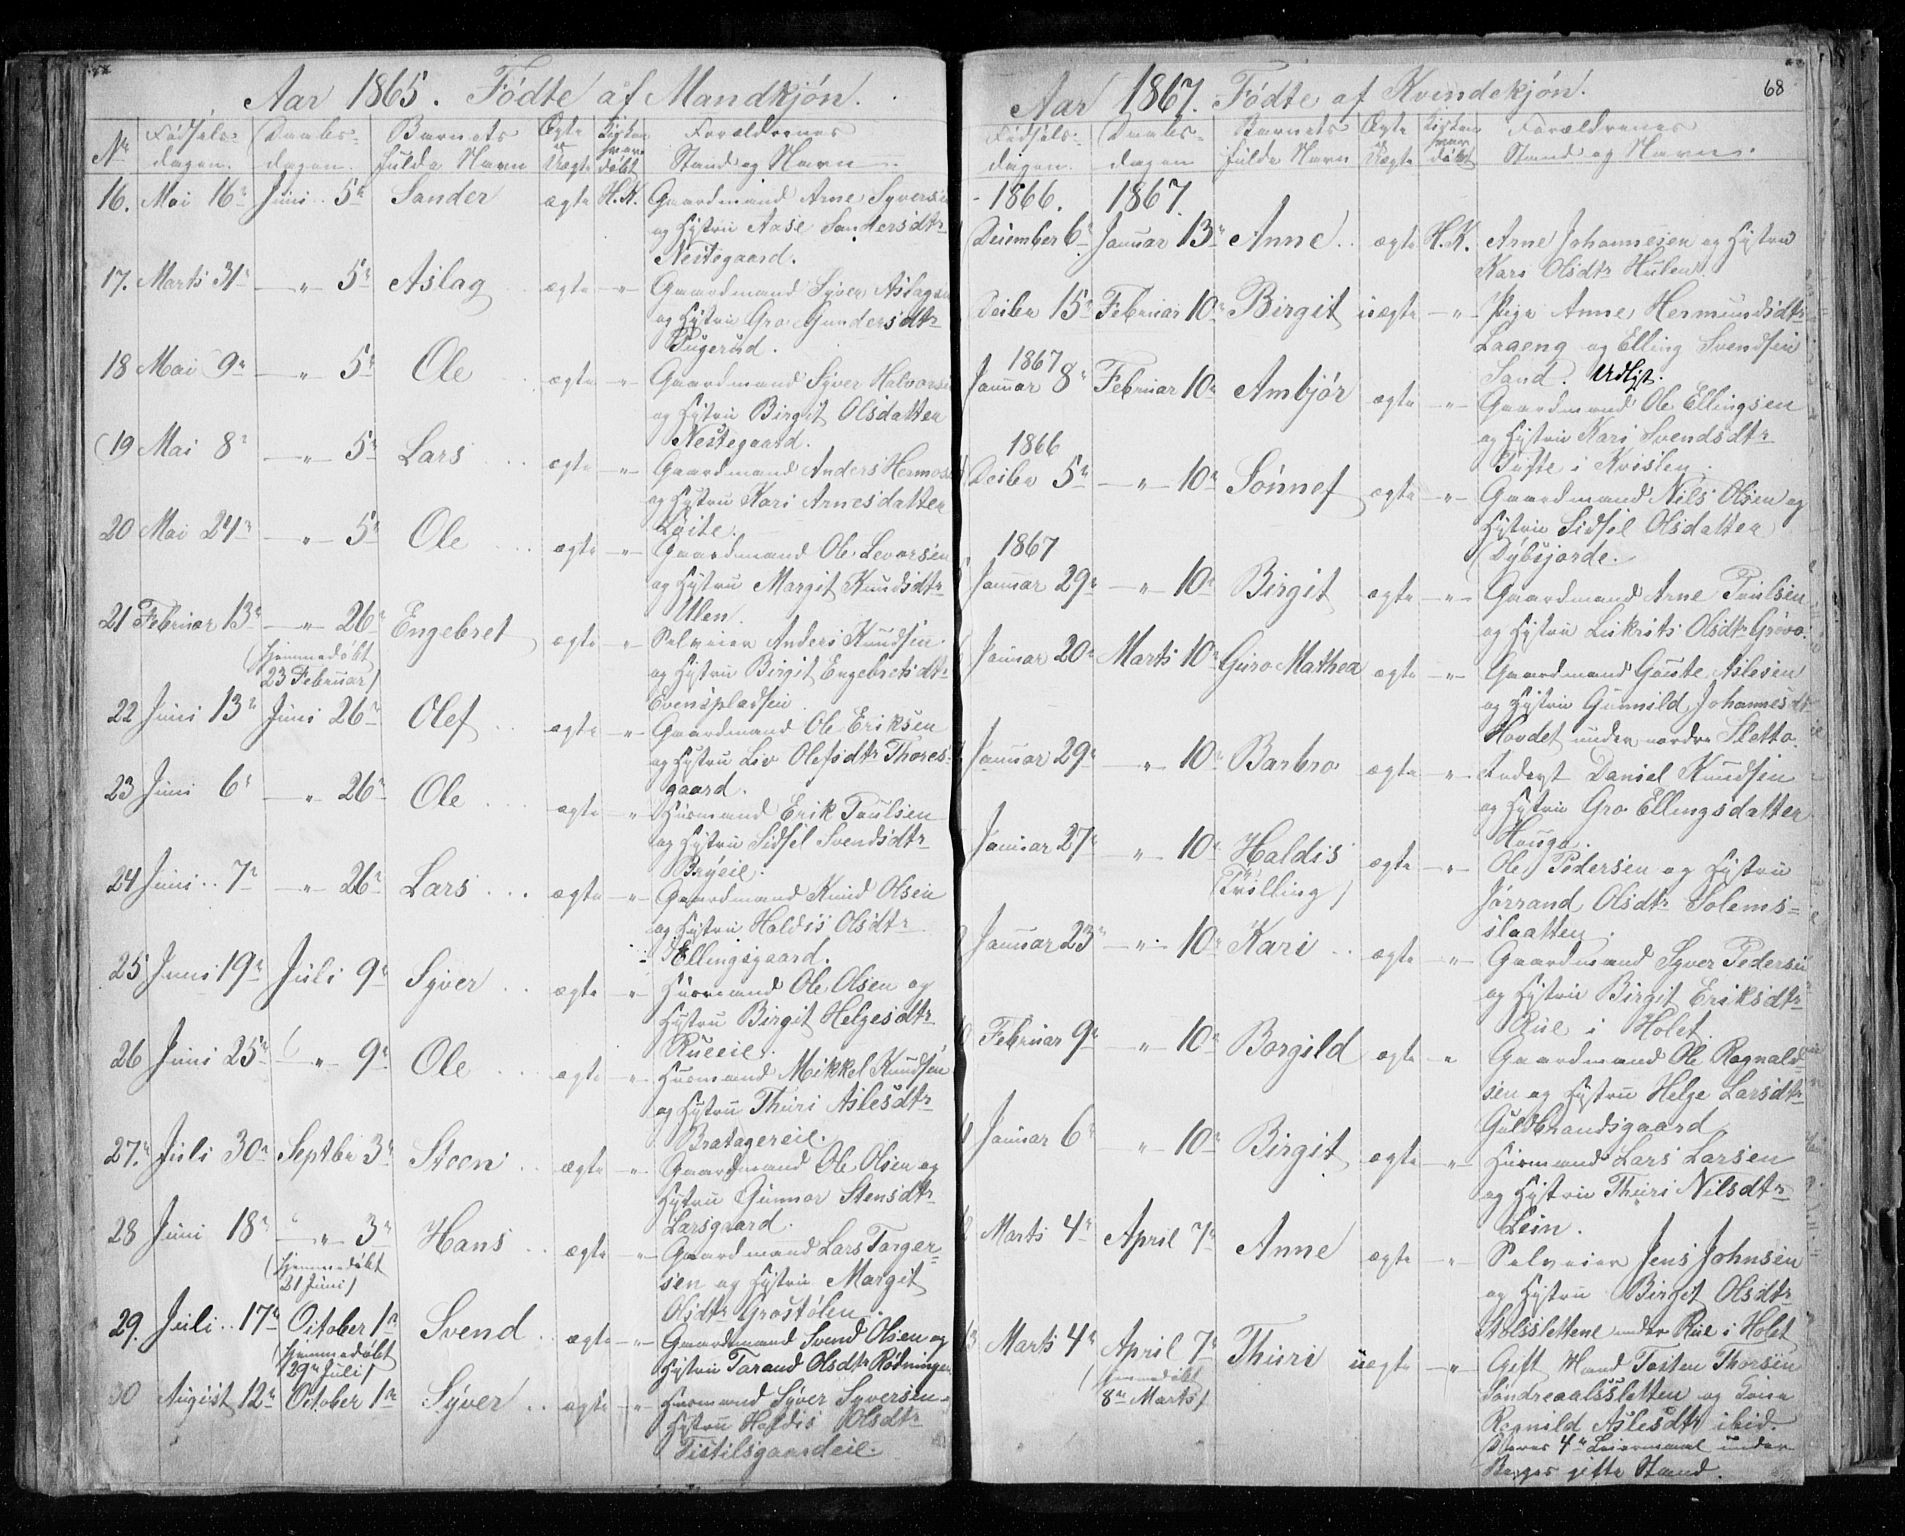 Aar 1865. Fødte af Mandkjøn.
Nr Fødsels-dagen. Daabs-dagen. Barnets fulde Navn Ægte Uægte Kirken døbt Forældrenes Stand og Navn.
16. Mai 16de Juni 5te Sander ægte H.K. Gaardmand Arne Syversen
og Hustru Aase Sandersdtr
Nestegaard.
17. Marts 31te — " 5te Aslag ægte " Gaardmand Syver Aslagsen
og Hustru Gro Gundersdtr
18 Mai 9de — " 5te Ole ægte " Gaardmand Syver Halvorsen
og Hustru Birgit Olsdatter
Nestegaard.
19 Mai 8de — " 5te Lars ægte " Gaardmand Anders
og Hustru Kari Arnesdatter
20 Mai 24de — " 5te Ole ægte " Gaardmand Ole Levorsen
og Hustru Margit Knudsdtr
Ulen.
21 Februar 13de — " 26de Engebret ægte " Selveier Anders Knudsen
(hjemmedøbt
23 Februar) og Hustru Birgit Engebretsdtr
Evensplassen
22 Juni 13de Juni 26de Olef ægte " Gaardmand Ole Eriksen
og Hustru Liv Olefsdtr Thores-
gaard.
23 Juni 6te — " 26de Ole ægte " Husmand Erik Paulsen
og Hustru Sidsel Svendsdtr
24 Juni 7de — " 26de Lars ægte " Gaardmand Knud Olsen
og Hustru Haldis Olsdtr
Ellingsgaard.
25 Juni 19de Juli 9de Syver ægte " Husmand Ole Olsen og
Hustru Birgit Helgesdtr
Rueeie.
26 Juni 25de " 9de Ole ægte " Husmand Mikkel Knudsen
og Hustru Thuri Aslesdtr
Bratagereie.
27. Juli 30te Septbr 3die Steen ægte " Gaardmand Ole Olsen og
Hustru Gunnor Stensdtr
Larsgaard.
28 Juni 18de — " 3die Hans ægte " Gaardmand Lars Torger-
(hjemmedøbt
21 Juni) sen og Hustru Margit
Olsdtr Grøstølen.
29. Juli 17de October 1ste Svend ægte " Gaardmand Svend Olsen og
(hjemmedøbt
29de Juli) Hustru Tarand Olsdtr Rødningen
30 August 12te October 1ste Syver ægte " Husmand Syver Syversen
Hustru Haldis Olsdtr
Tistilsgaardeie.
68
Aar 1867. Fødte af Kvindekjøn.
Fødsels-dagen. Daabs-dagen Barnets fulde Navn Ægte Uægte Kirken døbt Forældrenes Stand og Navn.
1866. 1867.
December 6te Januar 13de Anne ægte H.K. Arne Johannesen og Hustru
Kari Olsdtr Hulen.
Decbr 15de Februar 10de Birgit uægte " Pige Anne Hermundsdtr
Lageng og Elling Svendsen
Sand. Udlgt.
1867
Januar 8de Februar 10de Ambjør ægte " Gaardmand Ole Ellingsen
og Hustru Kari Svendsdtr
Tufte i Kvislen.
1866
Decbr 5te — " 10de Sønnef ægte " Gaardmand Nils Olsen og
Hustru Sidsel Olsdatter
Dybsjorde.
1867
Januar 29de — " 10de Birgit ægte " Gaardmand Arne Paulsen
og Hustru Olsdtr Grøvo.
Januar 20de Marts 10de Guro Mathea ægte " Gaardmand Gaute Aslesen
og Hustru Gunnild Johannesdtr
Hovdet under nordre Sletto.
Januar 29de " 10de Barbro ægte " Inderst Daniel Knudsen
og Hustru Gro Ellingsdatter
Hauga.
Januar 27de " 10de Haldis ægte " Ole Pedersen og Hustru
(Tvilling) Jørrand Olsdtr Solems-
slaatten.
Januar 23de — " 10de Kari ægte " Gaardmand Syver Pedersen
og Hustru Birgit Eriksdtr
Rue i Holet.
Februar 9de — " 10de Borgild ægte " Gaardmand Ole Ragnald-
sen og Hustru Helge Larsdtr
Guldbrandsgaard.
Januar 6te " 10de Birgit ægte " Husmand Lars Larsen
og Hustru Thuri Nilsdtr
Lein.
Marts 4de April 7de Anne ægte " Selveier Jens Johnsen
og Hustru Birgit Olsdtr
Stolsslettene under Rue i Holet
Marts 4de April 7de Thuri uægte " Gift Mand Tosten Thorsen
(hjemmedøbt
8de Marts) Sondreaalsletten og
Regnild Aslesdtr ibid.
(Deres 4de Leiermaal under
Begges gifte Stand.